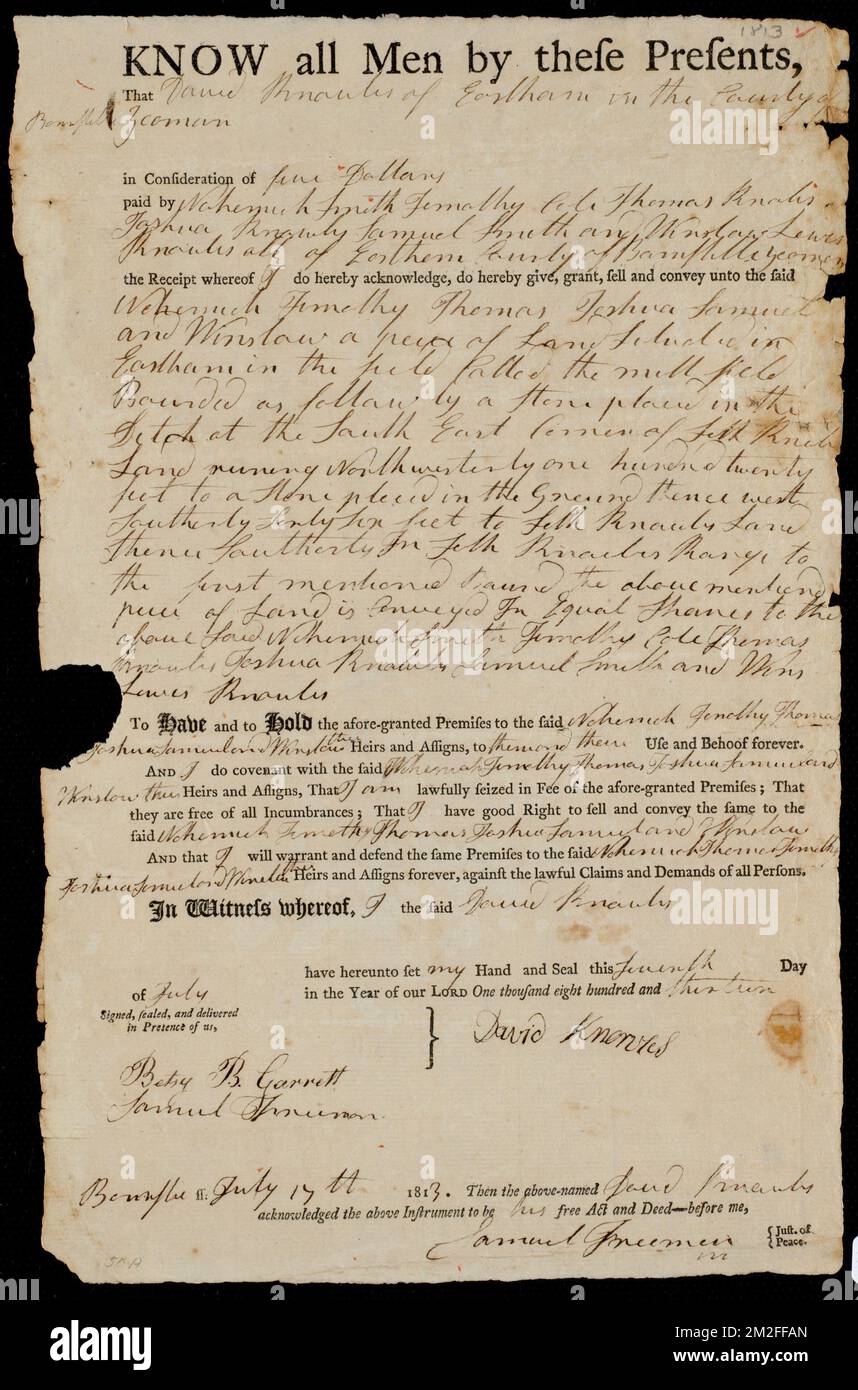 1813
KNOW all Men by theſe Preſents,
That David Knowles of Eastham in the County of
Barnstable Yeoman
in Conſideration of five Dollars
paid by Nehemiah Smith Timothy Cole Thomas Knowles
Joshua Knowles Samuel Smith and Winslow Lewis
Knowles all of Eastham County of Barnstable yeomen
the Receipt whereof I do hereby acknowledge, do hereby give, grant, ſell and convey unto the ſaid
Nehemiah Timothy Thomas Joshua Samuel
and Winslow a peice of Land Situded in
Eastham in the field Called the mill field
Bounded as follow by a Stone place in the
Ditch at the South East Corner of Seth Knowles
Land runing Northwesterly one hundred twenty
fot to a Stone placed in the Ground thence west
Southerly Sixty Six feet to Seth Knowles Land
thence Southerly In Seth Knowles Range to
the first mentioned Bound the above mentiond
peice of Land is Conveyed In Equal Shares to the
above Said Nehemiah Smith Timothy Cole Thomas
Knowles Joshua Knowles Samuel Smith and Wins
Lewis Knowles
To Have and to Hold the afore-granted Premiſes to the ſaid Nehemiah Timothy Thomas
Joshua Samuel and Winslow their Heirs and Aſſigns, to them and their Uſe and Behoof forever.
AND I do covenant with the ſaid Nehemiah Timothy Thomas Joshua Samuel and
Winslow their Heirs and Aſſigns, That I am lawfully ſeized in Fee of the afore-granted Premiſes ; That
they are free of all Incumbrances ; That I have good Right to ſell and convey the ſame to the
ſaid Nehemiah Timothy Thomas Joshua Samuel and Winslow
AND that I will warrant and defend the ſame Premiſes to the ſaid Nehemiah Thomas Timothy
Joshua Samuel and Winslow their Heirs and Aſſigns forever, againſt the lawful Claims and Demands of all Perſons.
In Witneſs whereof, I the ſaid David Knowles
have hereunto ſet my Hand and Seal this Seventh Day
of July in the Year of our LORD One thouſand eight hundred and thirteen
Signed, ſealed, and delivered
in Preſence of us,
David Knowles
Betsy B. Garrett
Samuel Freeman
Barnstable ſſ: July 17th 1813. Then the above-named David Knowles
acknowledged the above Inſtrument to be his free Act and Deed—before me,
Samuel Freeman { Juſt. of
Peace.
alamy
Image ID: 2M2FFAN
www.alamy.com